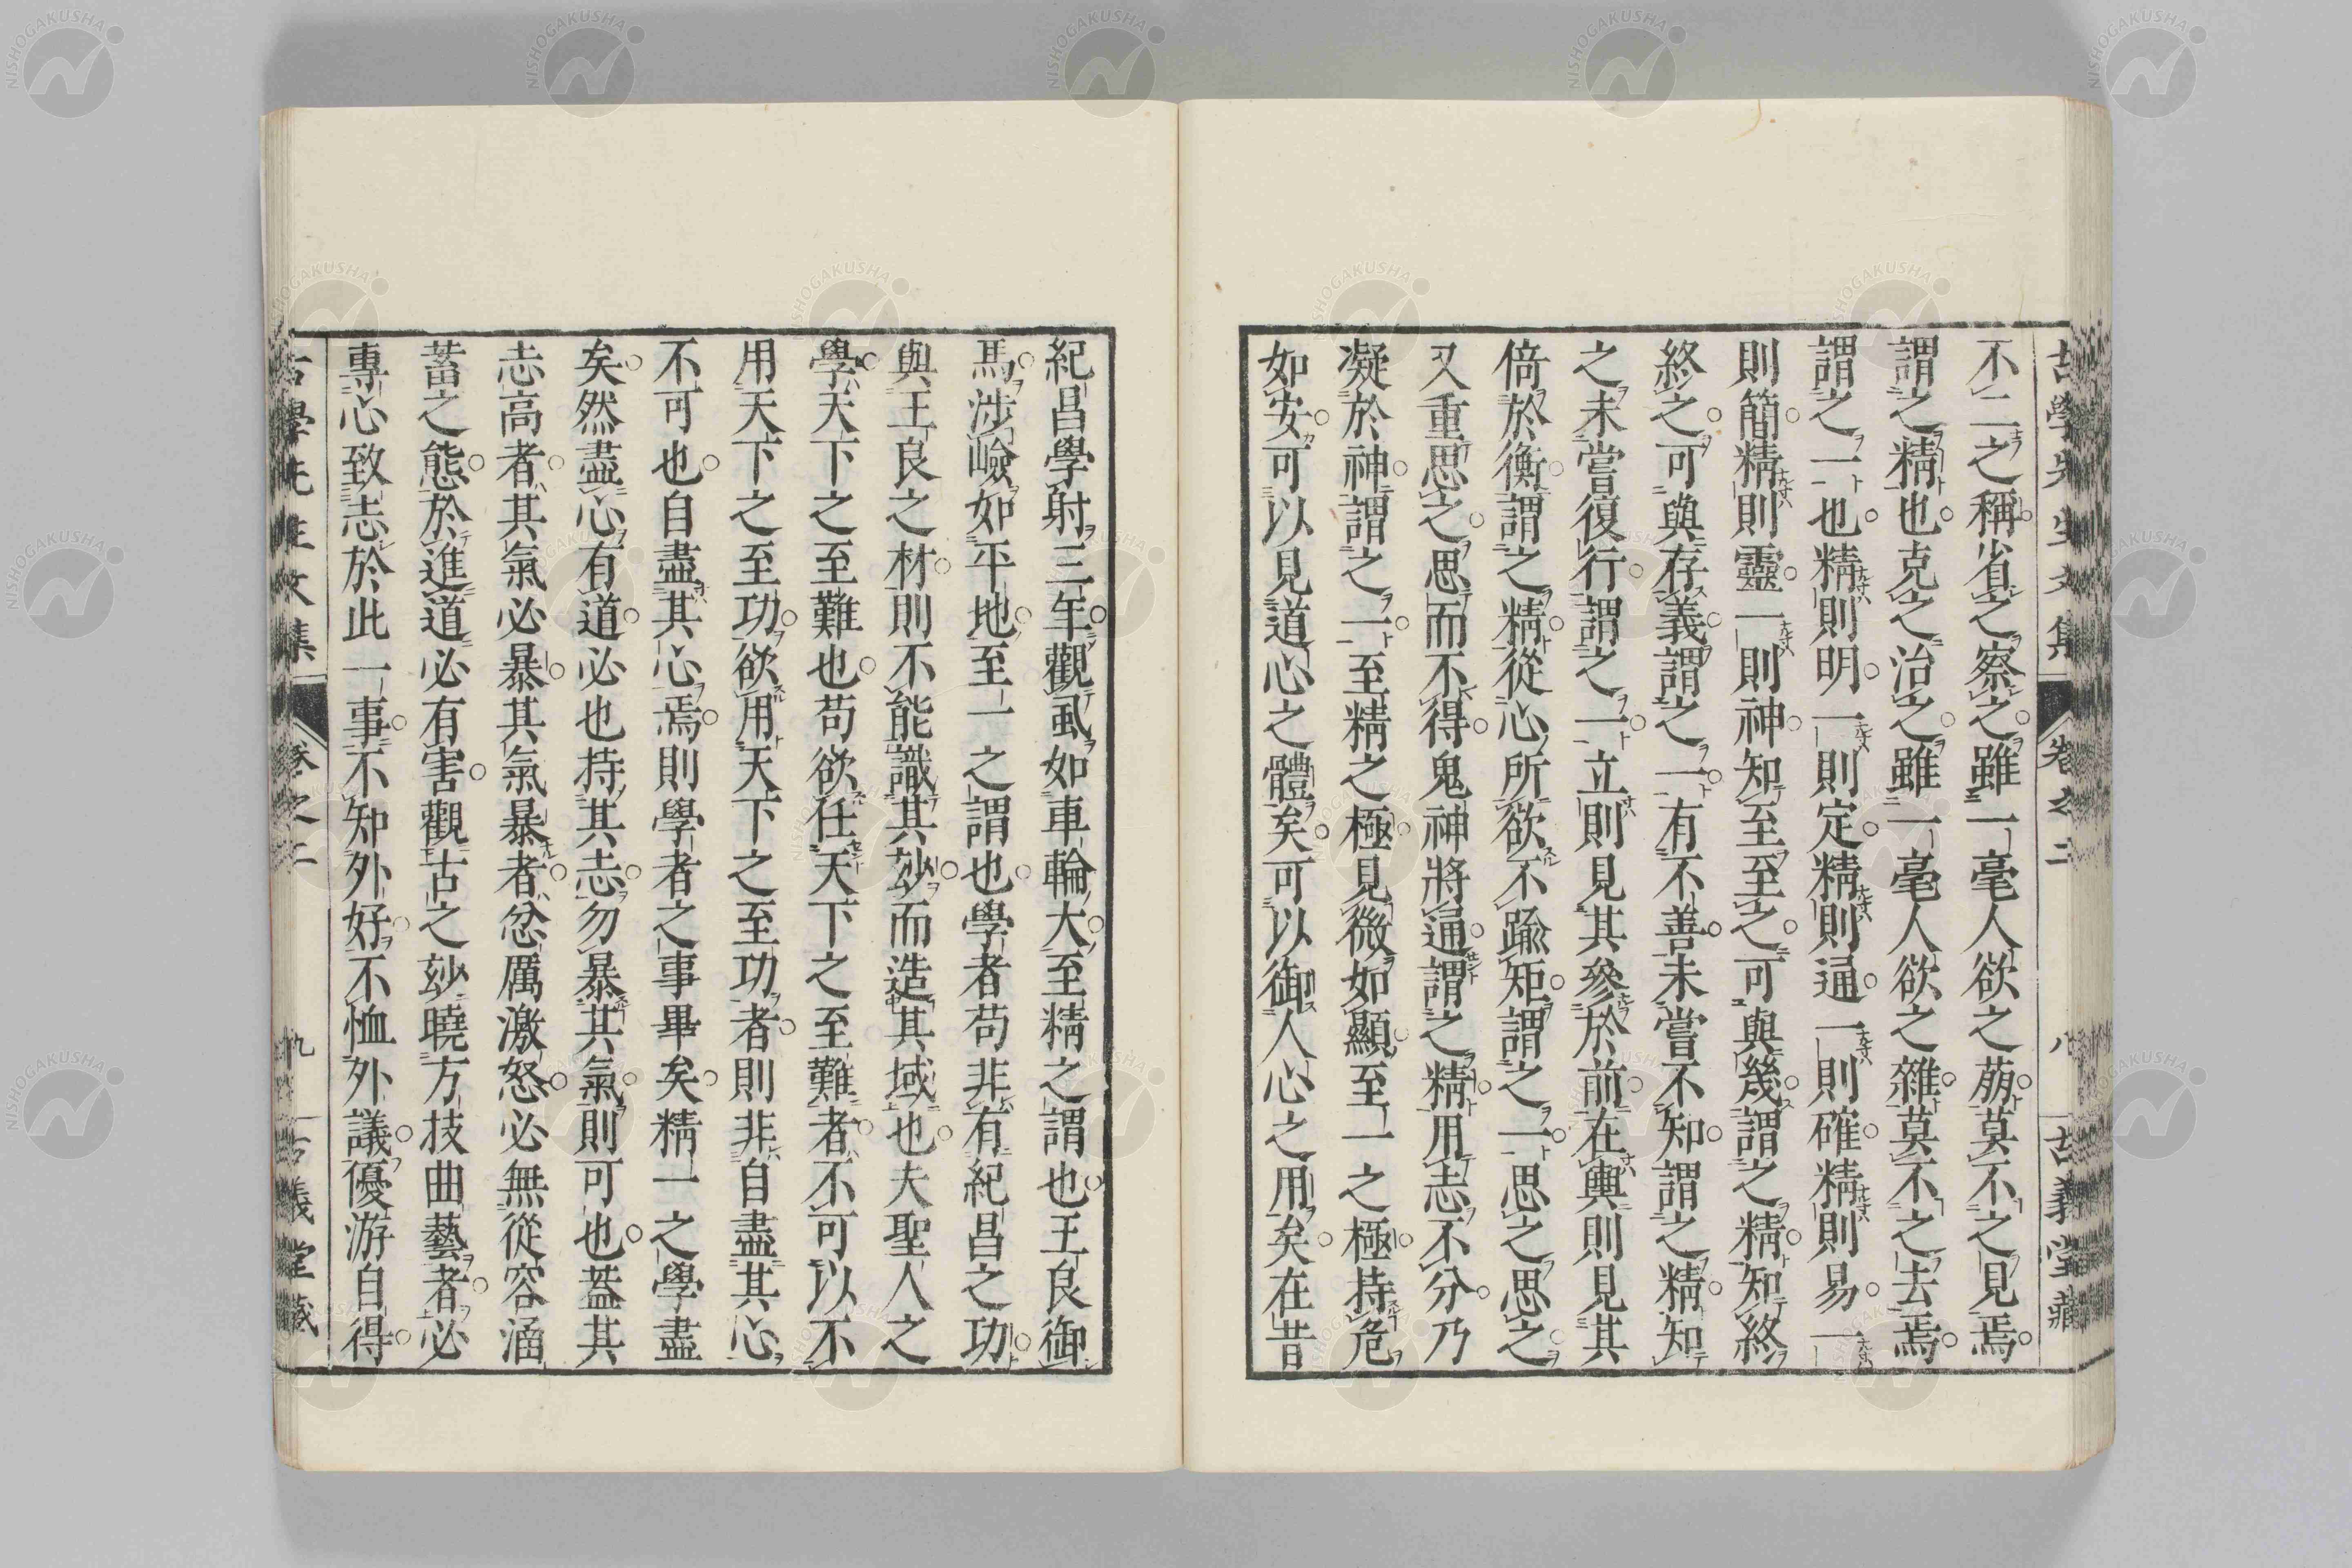 古學先生文集 卷之二 八 古義堂藏
不二之稱省之察之雖一毫人欲之萠莫不之見焉
謂之精也克之治之雖一毫人欲之雜莫不之去焉
謂之一也精則明一則定精則通一則確精則易一
則簡精則靈一則神知至至之可與幾謂之精知終
終之可與存義謂之一有不善未嘗不知謂之精知
之未嘗復行謂之一立則見其參於前在輿則見其
倚於衡謂之精從心所欲不踰矩謂之一思之思之
又重思之思而不得鬼神將通謂之精用志不分乃
凝於神謂之一至精之極見微如顯至一之極持危
如安可以見道心之體矣可以御人心之用矣在昔
紀昌學射三年觀虱如車輪大至精之謂也王良御
馬涉嶮如平地至一之謂也學者苟非有紀昌之功
與王良之材則不能識其玅而造其域也夫聖人之
學天下之至難也苟欲任天下之至難者不可以不
用天下之至功欲用天下之至功者則非自盡其心
不可也自盡其心焉則學者之事畢矣精一之學盡
矣然盡心有道必也持其志勿暴其氣則可也葢其
志高者其氣必暴其氣暴者忿厲激怒必無從容涵
蓄之態於進道必有害觀古之玅曉方技曲藝者必
專心致志於此一事不知外好不恤外議優游自得
古學先生文集 卷之二 九 古義堂藏
NISHOGAKUSHA